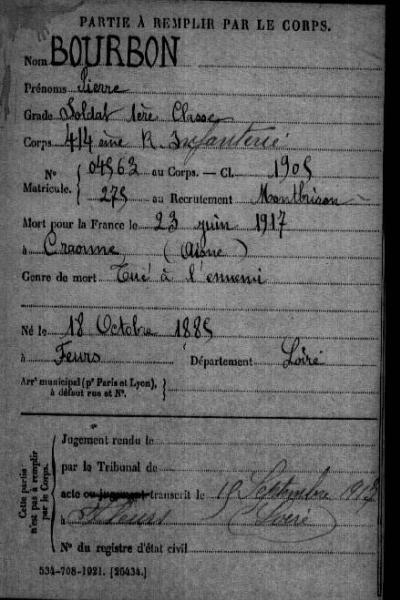 PARTIE À REMPLIR PAR LE CORPS.
Nom BOURBON
Prénoms Pierre
Grade Soldat 1ère Classe
Corps 414 ème R. Infanterie
N° 04563 au Corps. — Cl. 1905
Matricule. 275 au Recrutement Montbrison
Mort pour la France le 23 juin 1917
à Craonne (Aisne)
Genre de mort Tué à l'ennemi
Né le 18 Octobre 1885
à Feurs Département Loire
Arrt municipal (pr Paris et Lyon), à défaut rue et N°.
Cette partie n'est pas à remplir par le Corps.
Jugement rendu le
par le Tribunal de
acte ou jugement transcrit le 19 Septembre 1917
à Feurs (Loire)
N° du registre d'état civil
534-708-1921. [26434.]